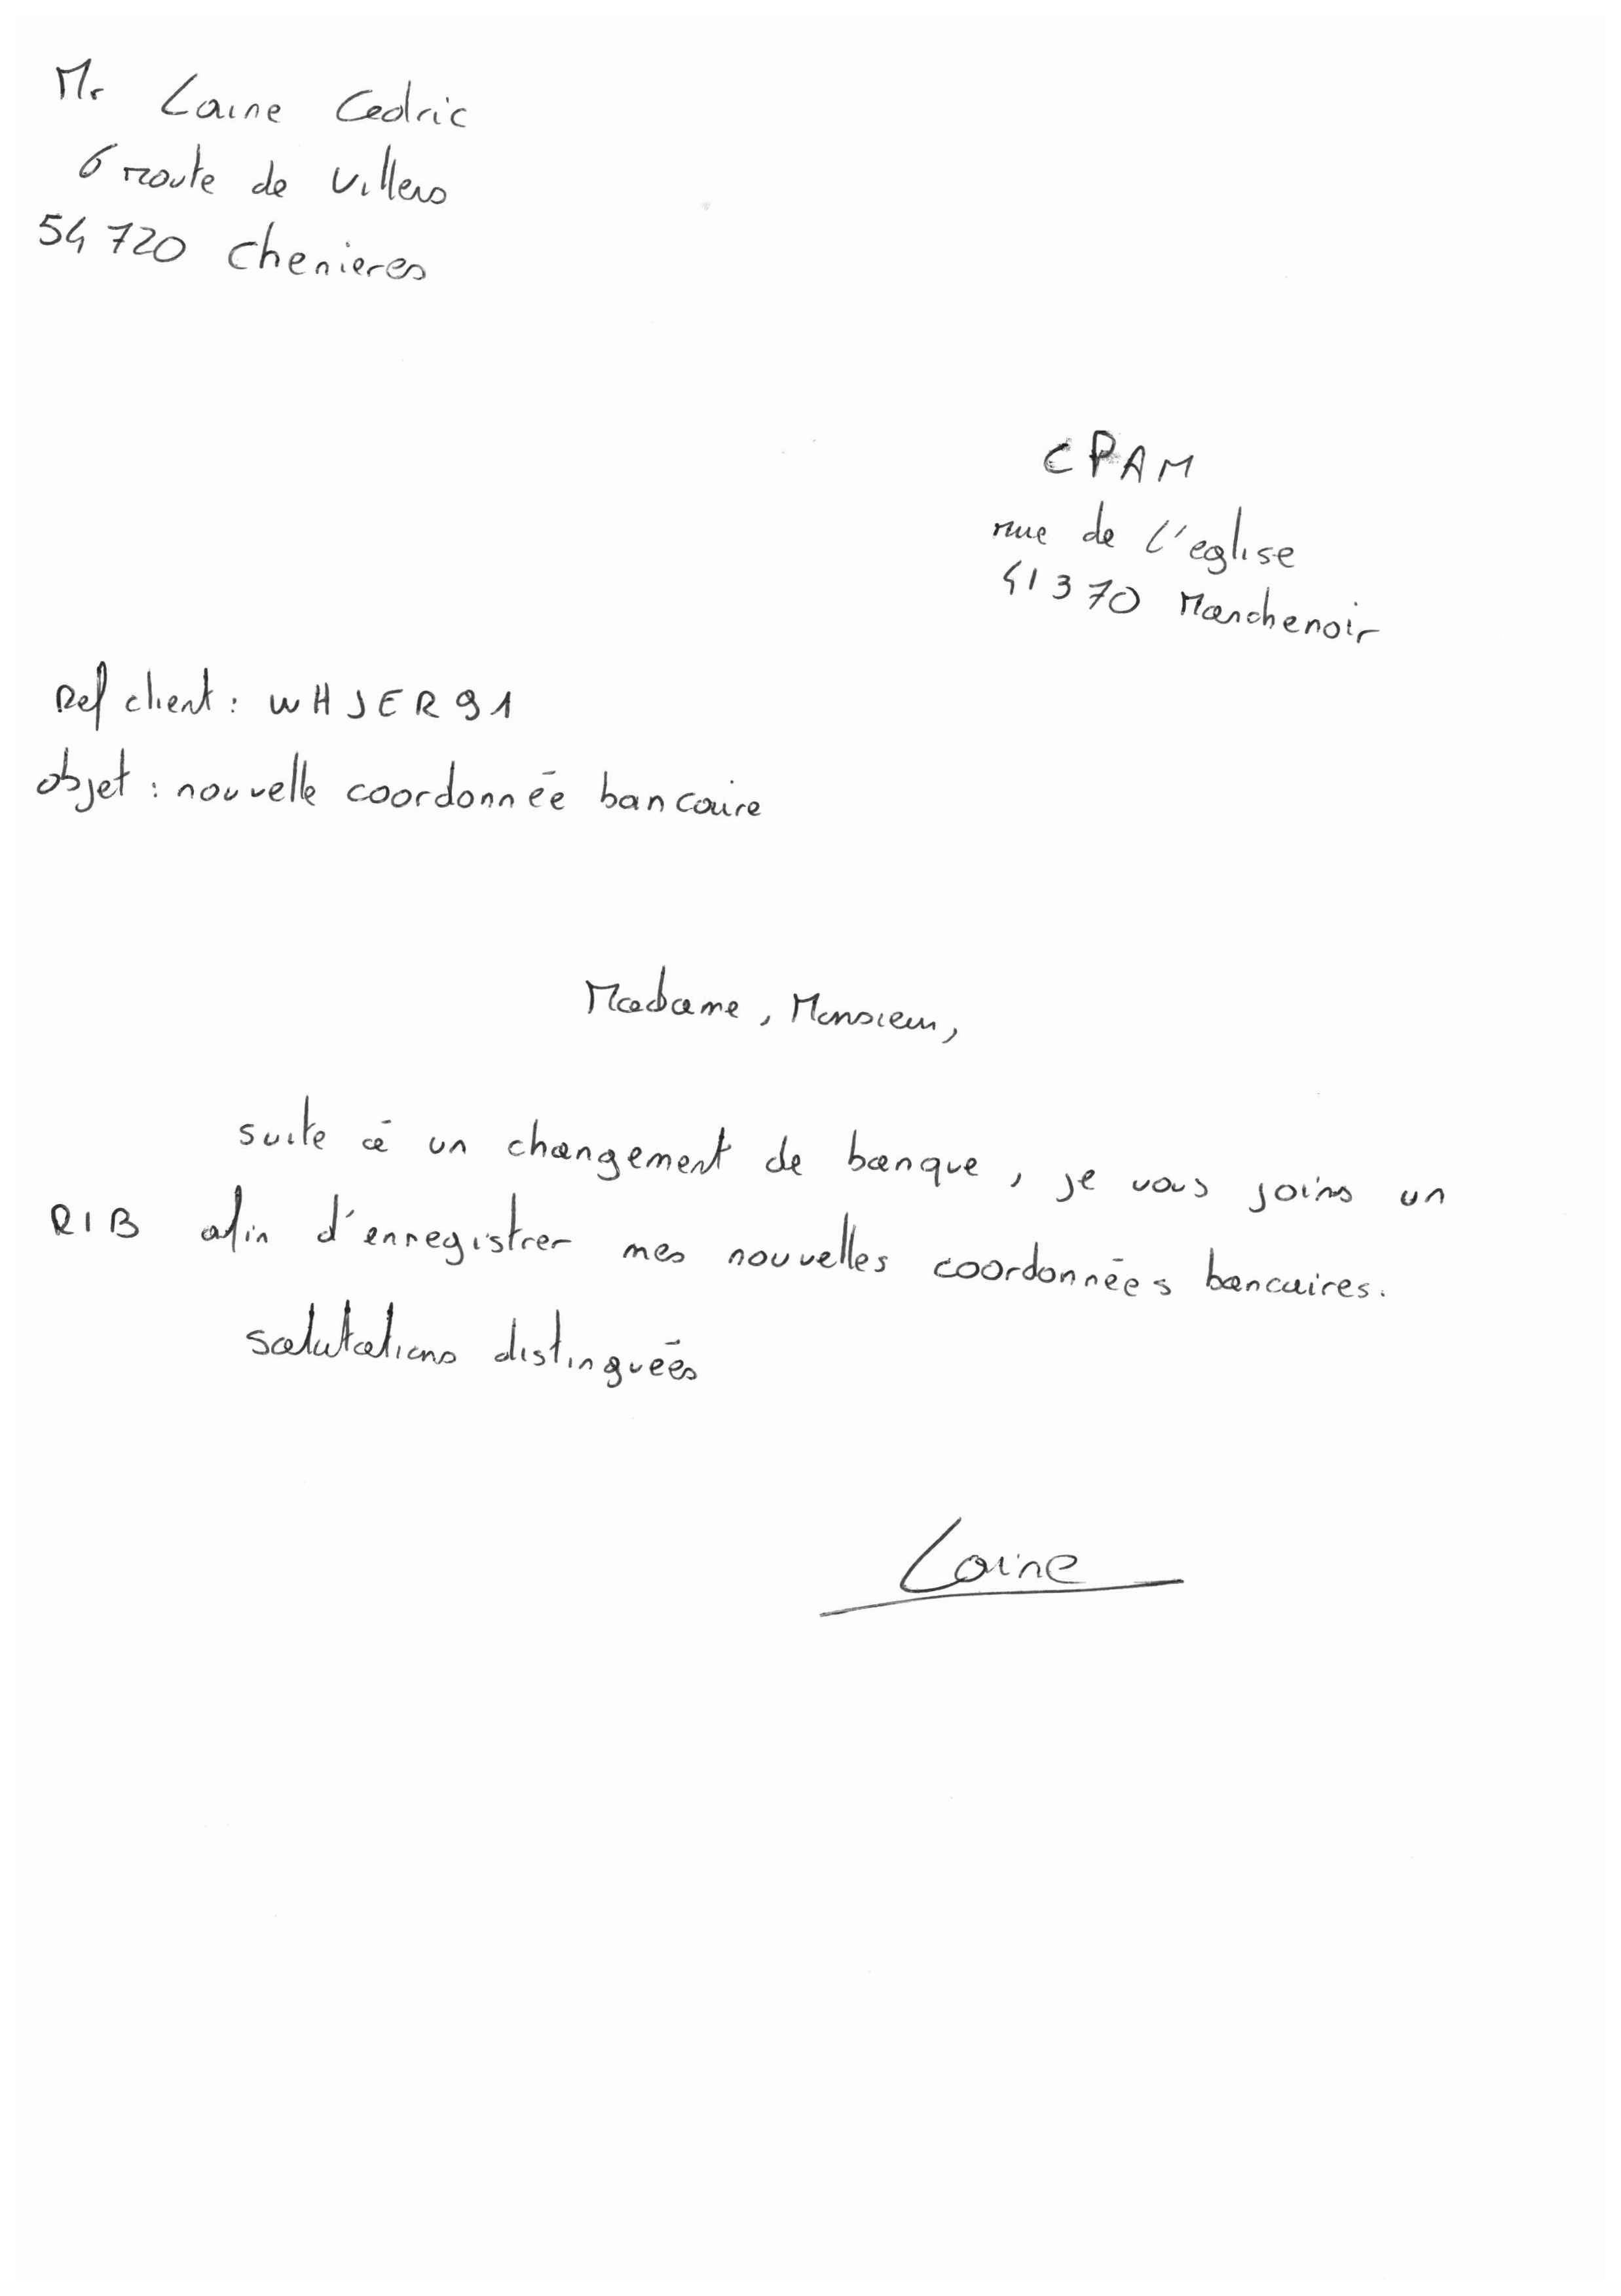 Mr Laine Cedric
6 route de Villers
54720 Chenieres
CPAM
rue de l'eglise
41370 Marchenoir
Ref client : WHJER91
objet : nouvelle coordonnée bancaire
Madame, Monsieur,
suite à un changement de banque, je vous joins un
RIB afin d'enregistrer mes nouvelles coordonnées bancaires.
salutations distinguées
Laine